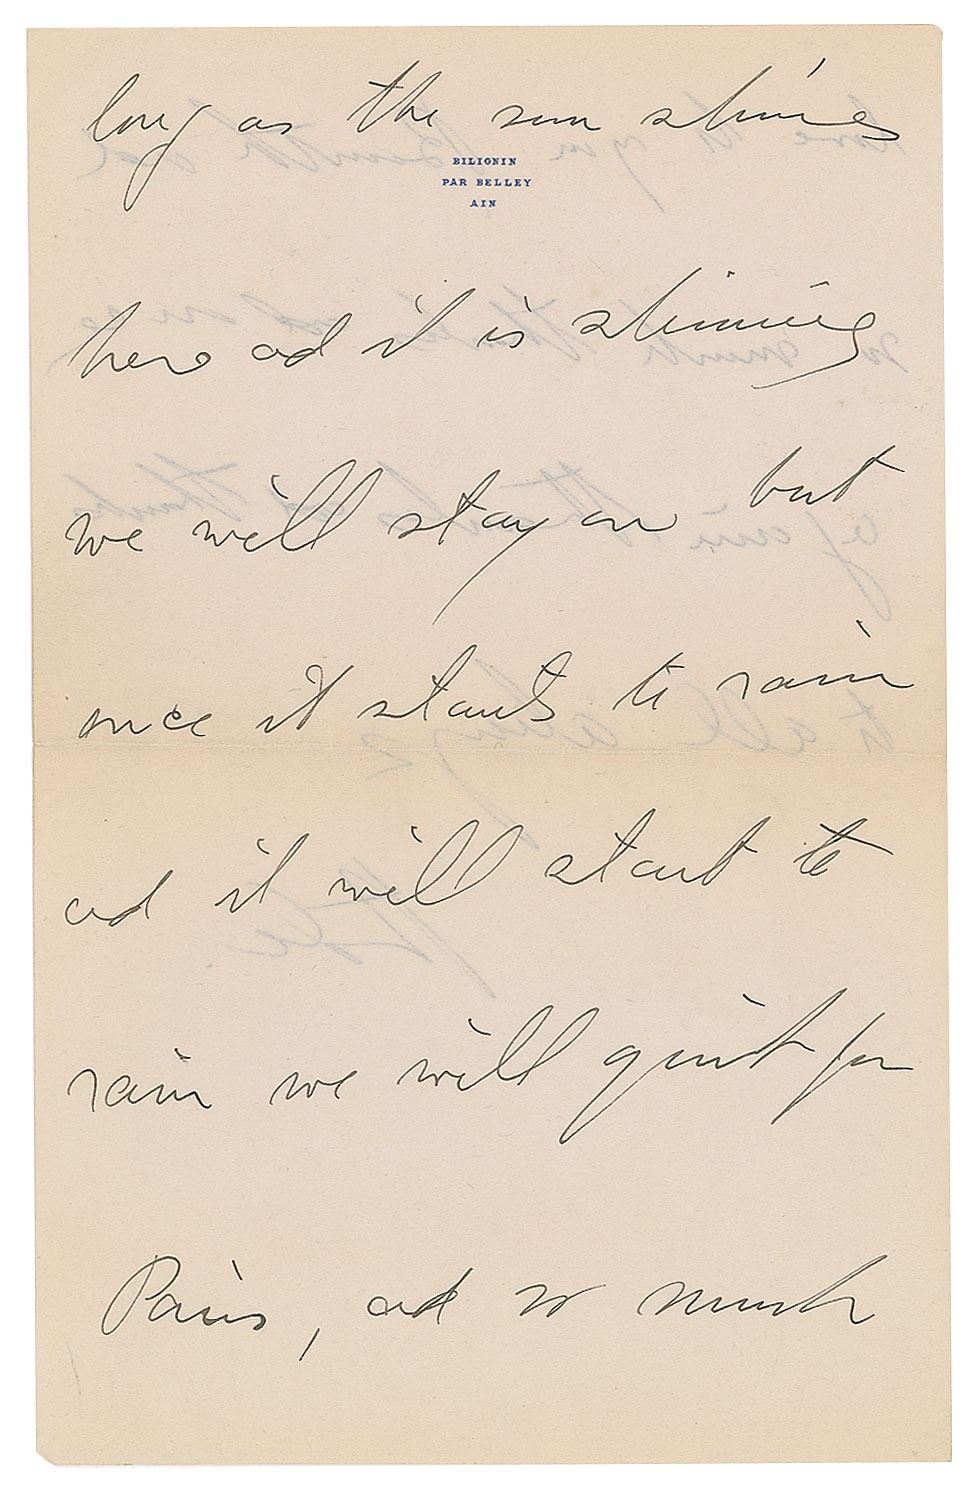 long as the sun shines
BILIGNIN
PAR BELLEY
AIN
here ad it is shining
we will stay on but
once it starts to rain
ad it will start to
rain we will quit for
Paris, ad so much